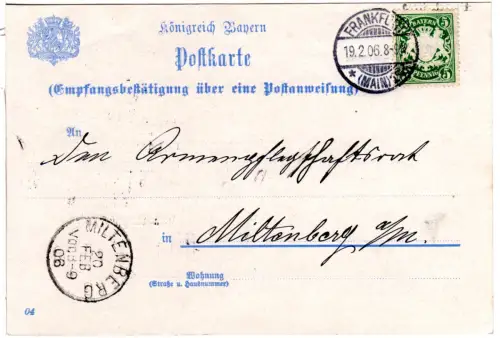 Königreich Bayern
Postkarte
(Empfangsbestätigung über eine Postanweisung)
FRANKFURT
19.2.06.8-
* (MAIN)
BAYERN
5 5
PFENNIG
An
Den Armenpflegschaftsrat
in Miltenberg a/m.
Wohnung
(Straße u. Hausnummer)
MILTENBERG
20
FEB
VOR 8-9
06
04